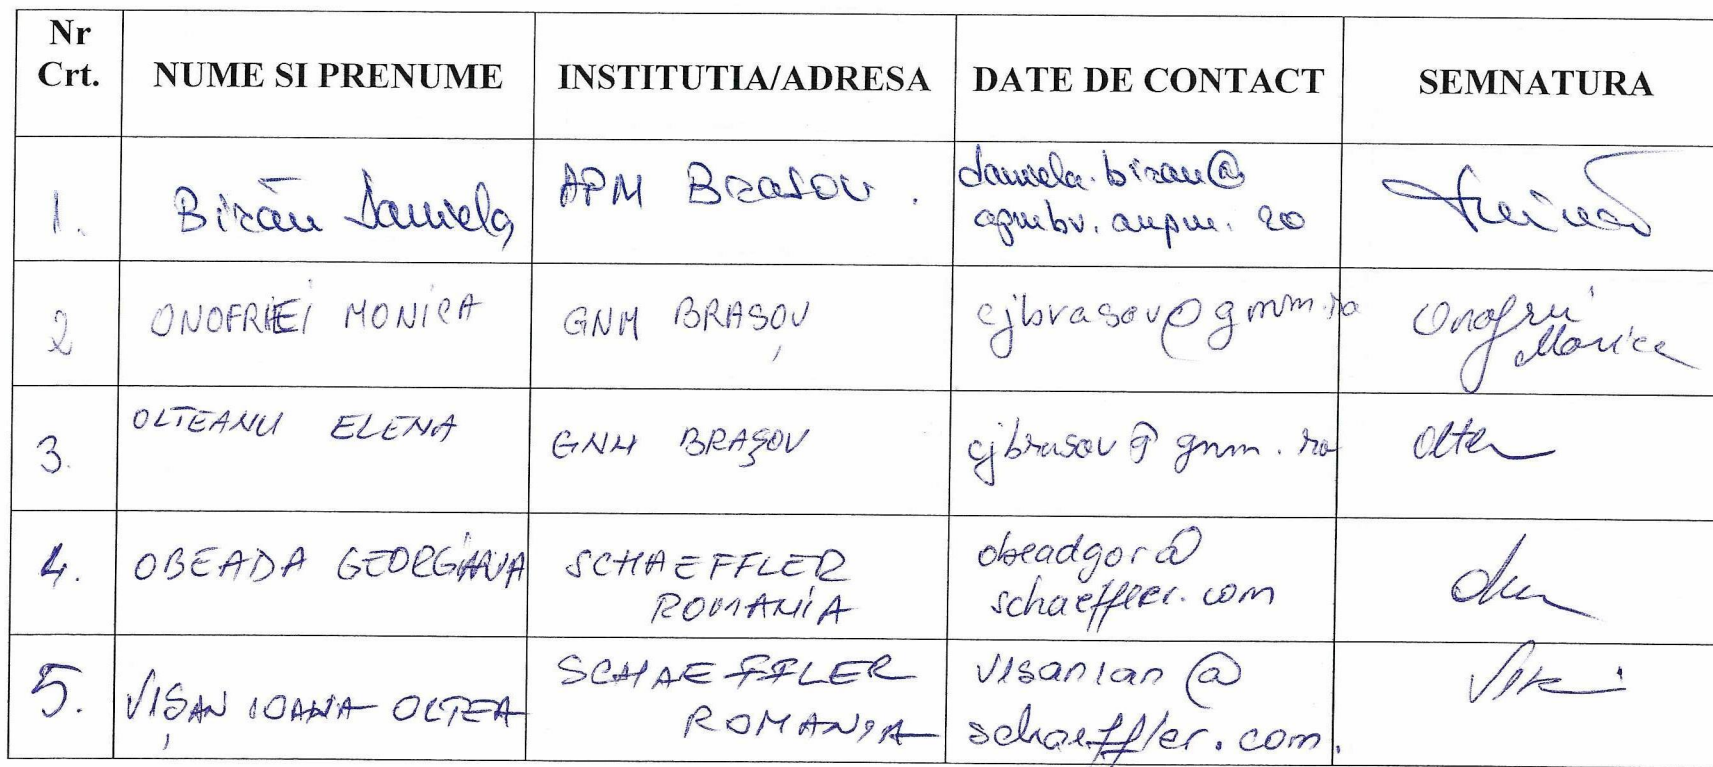 Nr Crt. NUME SI PRENUME INSTITUTIA/ADRESA DATE DE CONTACT SEMNATURA
1. Birău Daniela APM Brasov. daniela.birau@
apmbv.anpm.ro
2 ONOFRIEI MONICA GNM BRAȘOV cjbrasov@gnm.ro Onofrei
Monica
3. OLTEANU ELENA GNM BRAȘOV cjbrasov@gnm.ro Olten
4. OBEADA GEORGIANA SCHAEFFLER obeadgor@
ROMANIA schaeffler.com
5. VIȘAN IOANA OLTEA SCHAEFFLER visanian@
ROMANIA schaeffler.com.